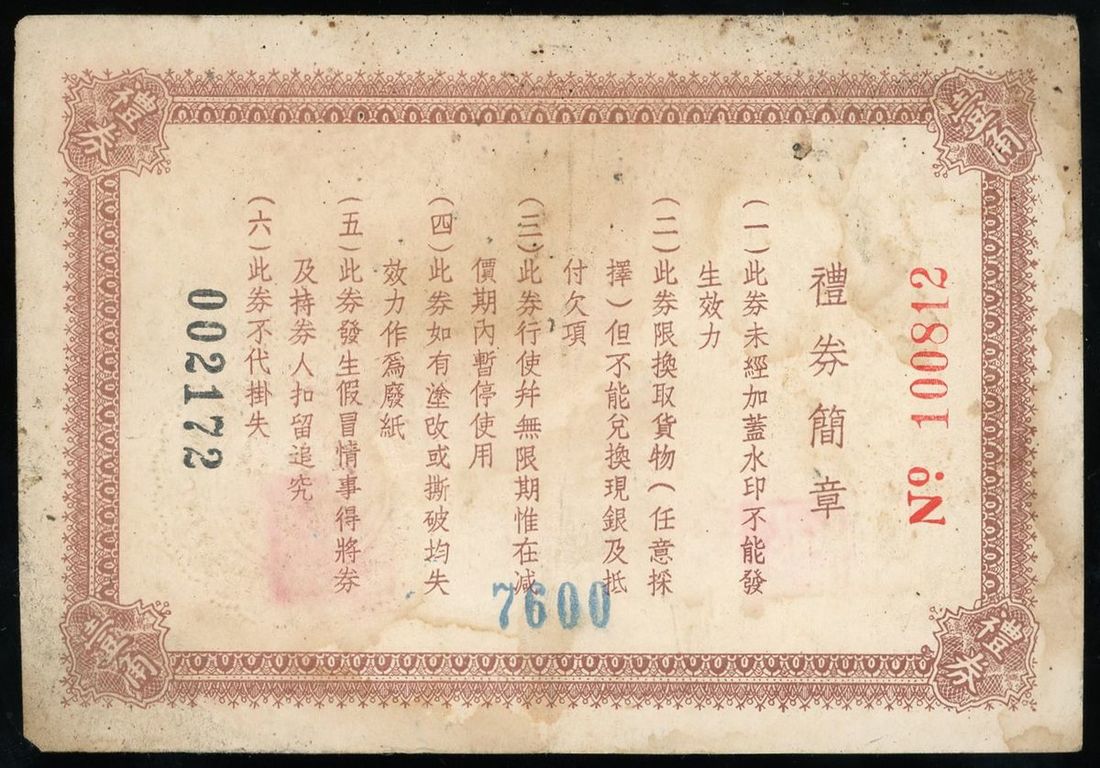 No 100812
禮券簡章
(一)此券未經加蓋水印不能發
生效力
(二)此券限換取貨物(任意採
擇)但不能兌換現銀及抵
付欠項
(三)此券行使幷無限期惟在減
價期內暫停使用
(四)此券如有塗改或撕破均失
效力作爲廢紙
(五)此券發生假冒情事得將券
及持券人扣留追究
(六)此券不代掛失
002172
7600
禮券
禮券